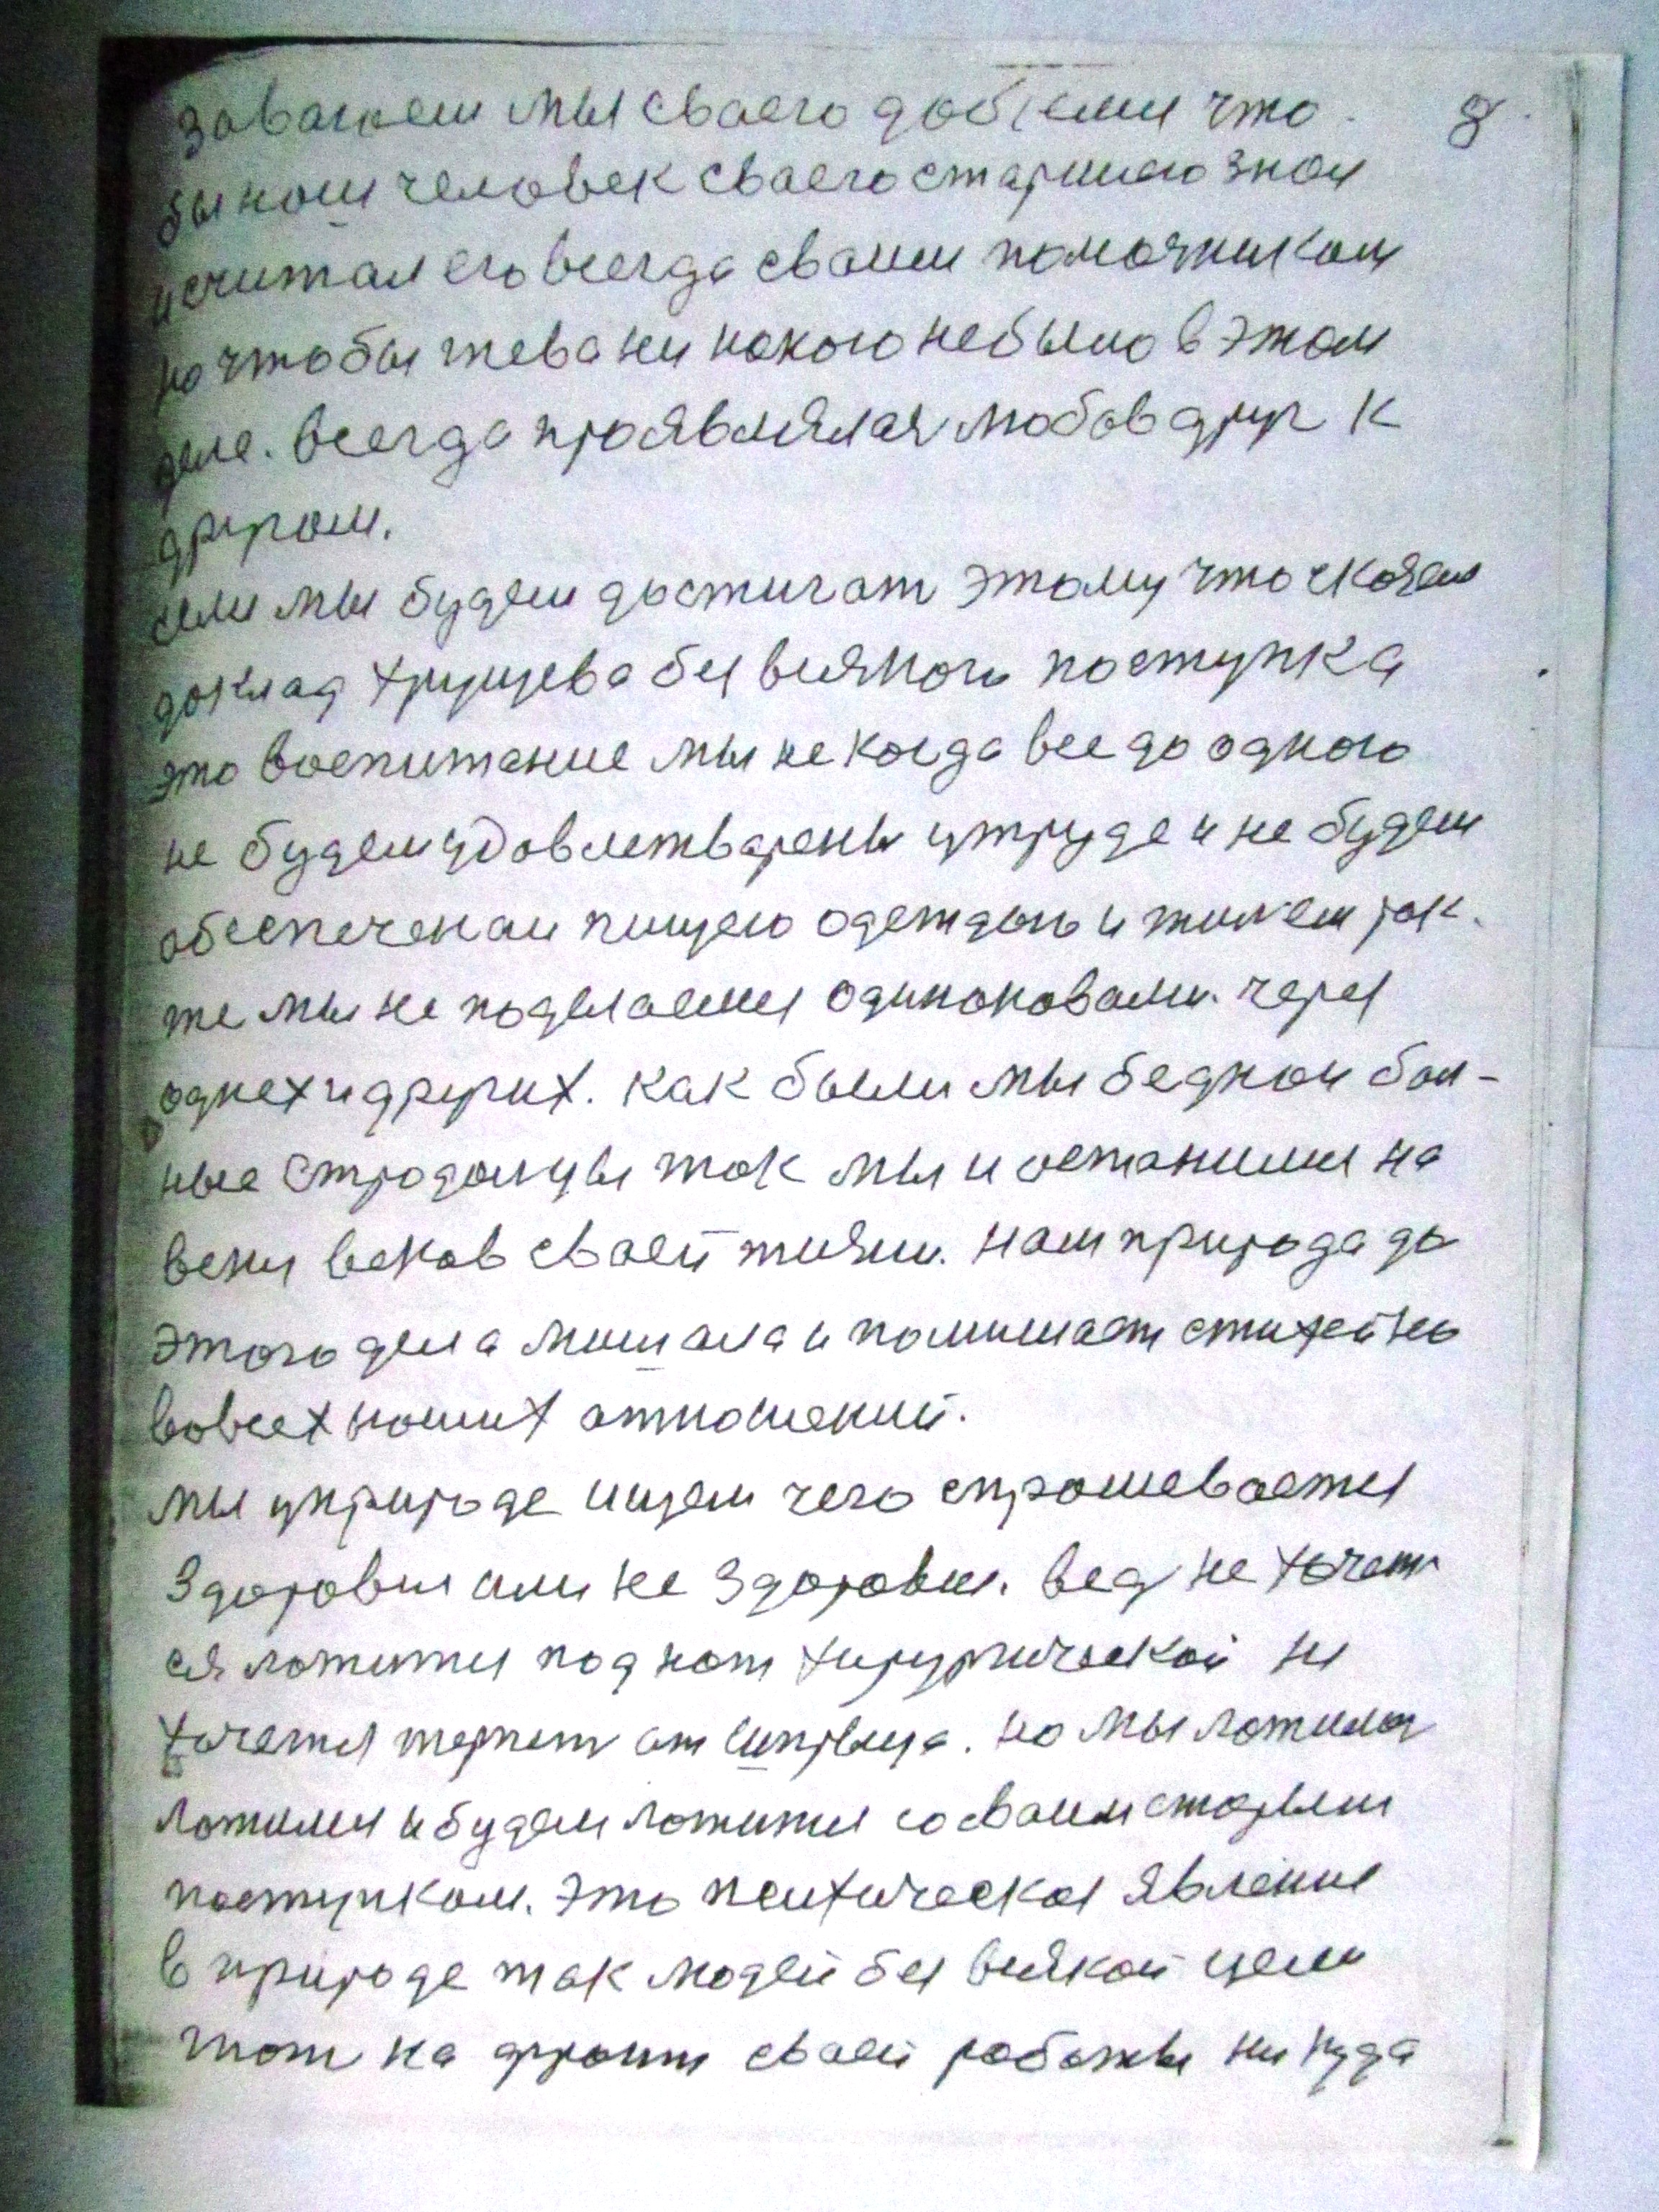 Завоюем мы сваего добiемся что 8
бы наш человек сваего старшего знал
и считал его всегда сваим помочником
но чтобы жева ни накого небыло в этом
деле. всегда проявлялася любов друг к
другом.
если мы будем достигат этому что сказал
доклад Хрущева без всякого поступка
это воспитание мы не когда все до одного
не будем удовлетварены у труде и не будем
обеспеченаи пищею одеждою и жилем так.
же мы не поделаемся одинаковами. через
однех и других. как были мы беднаи бол-
ные страдальцы так мы и останимся на
веки веков сваей жизни. нам природа до
этого дела мишала и помишает стихейно
вовсех наших отношений.
мы у природе ищем чего спрошевается
Здоровия или не Здоровия. вед не хочет
ся ложится под нож хирургической не
хочется терпет от шприца. но мы ложилися
ложимся и будем ложится со сваим старым
поступком. это психическая явления
в природе так людей без всякой цели
тот на фронт сваей работы ни куда